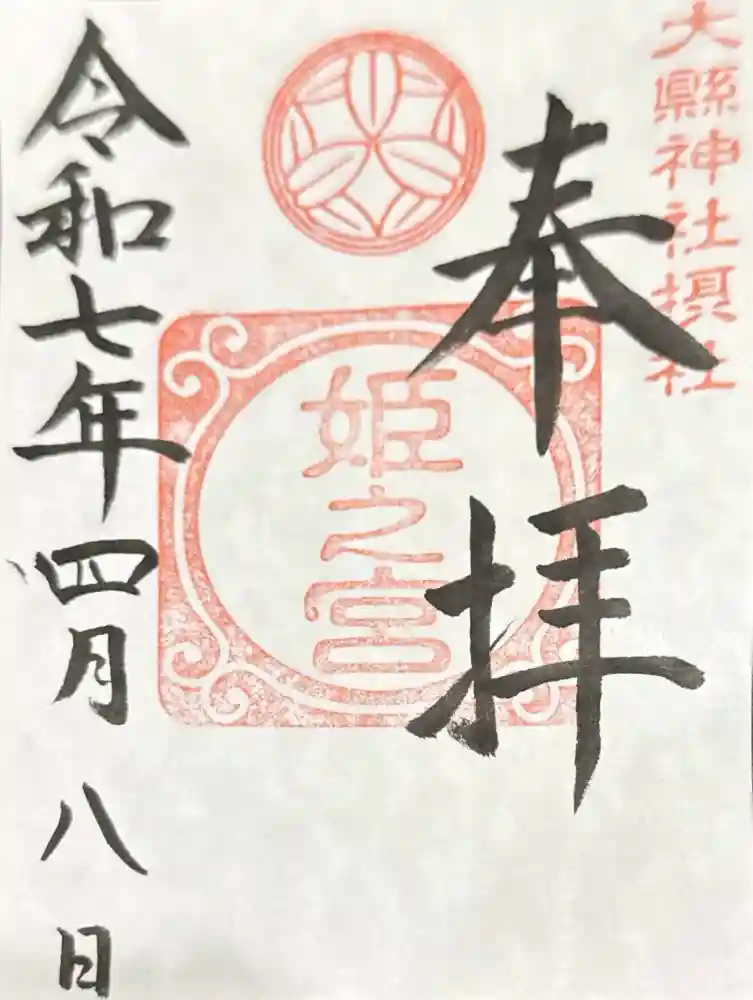 大縣神社摂社
奉拝
姫之宮
令和七年四月八日